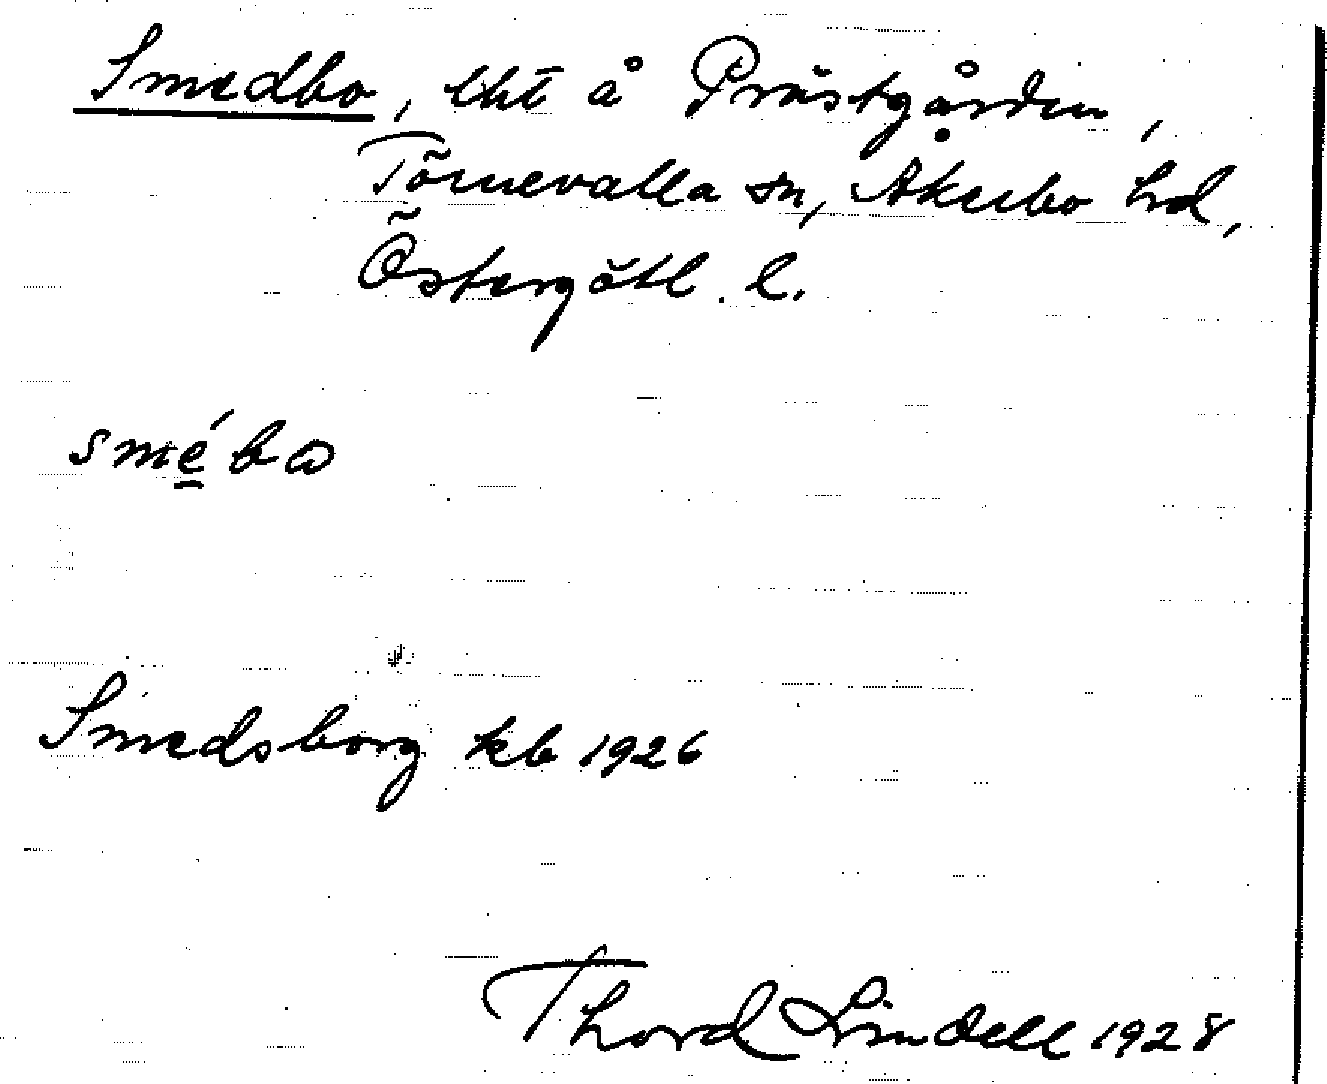 Smedbo, lht å Prästgården,
Törnevalla sn, Åkerbo hd,
Östergötl. l.
smébω
Smedsborg kb 1926
Thord Lindell 1928